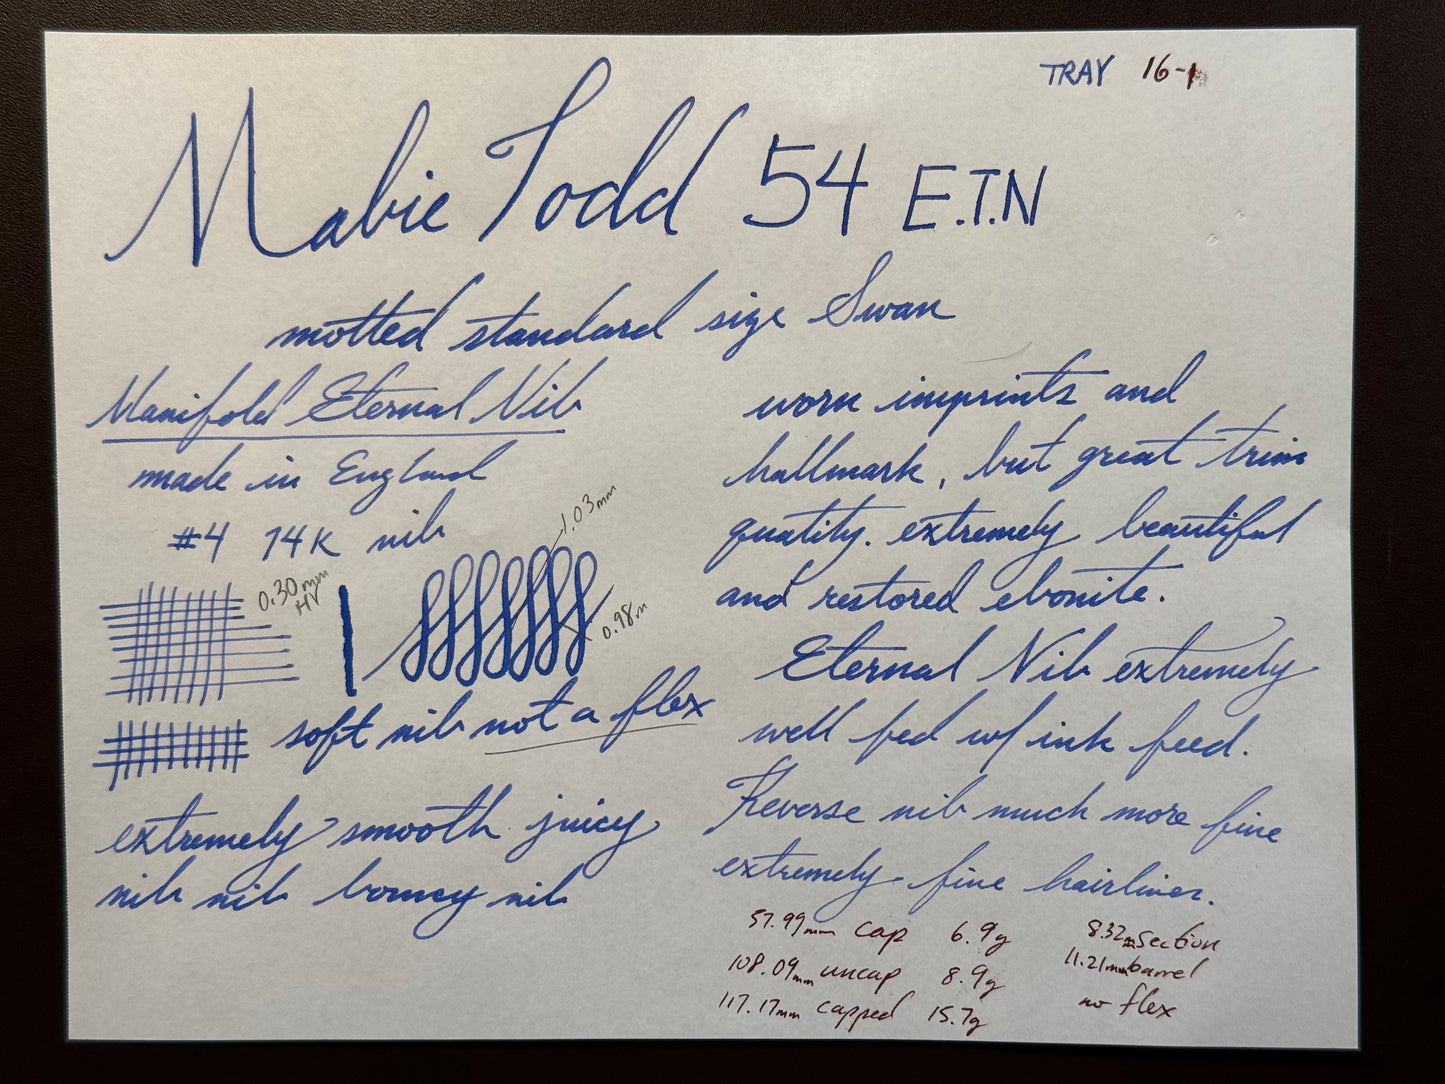 TRAY 16-1
Mabie Todd 54 E.T.N
mottled standard size Swan
Manifold Eternal Nib
made in England
#4 14K nib
0.30mm
HV
1.03mm
0.98m
soft nib not a flex
extremely smooth juicy
nib nib bouncy nib
worn imprints and
hallmark, but great trim
quality. extremely beautiful
and restored ebonite.
Eternal Nib extremely
well fed w/ ink feed.
Reverse nib much more fine
extremely fine hairlines.
57.99mm cap 6.9g
108.09mm uncap 8.9g
117.17mm capped 15.7g
8.32m section
11.21mm barrel
no flex